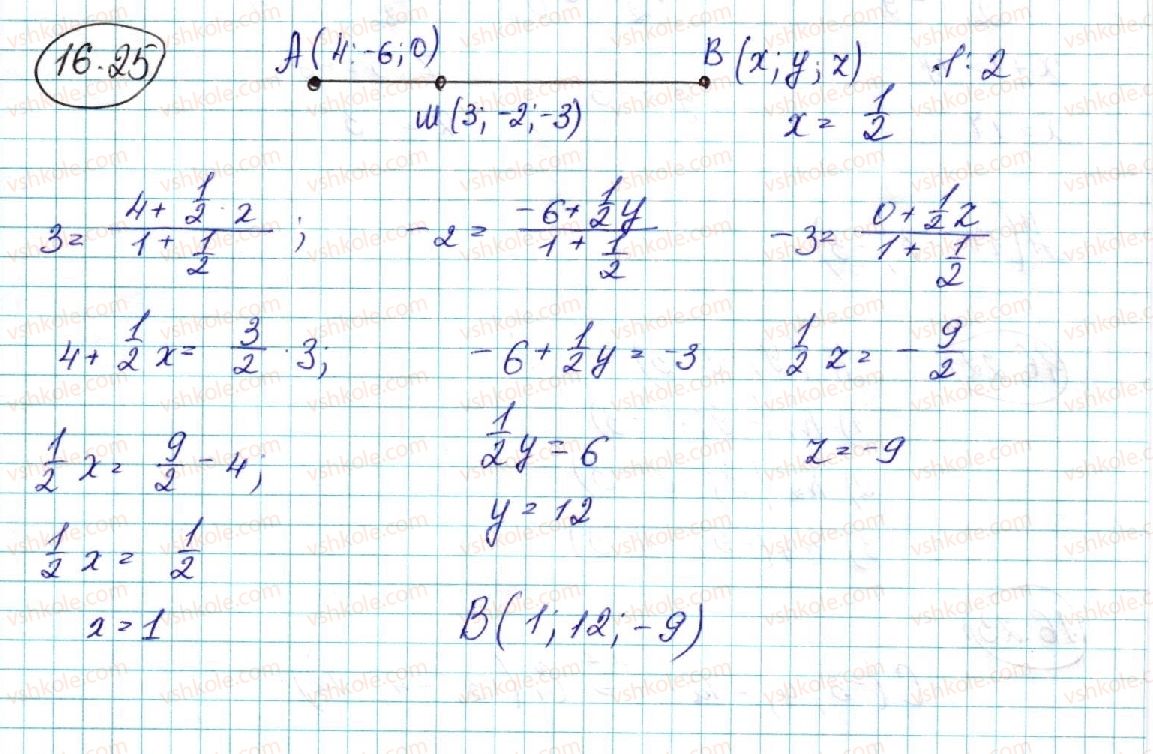 16.25 A(4; -6; 0) B(x; y; z) 1:2
M(3; -2; -3) x = 1/2
3 = (4 + 1/2 · 2)/(1 + 1/2); -2 = (-6 + 1/2 y)/(1 + 1/2) -3 = (0 + 1/2 z)/(1 + 1/2)
4 + 1/2 x = 3/2 · 3; -6 + 1/2 y = -3 1/2 z = -9/2
1/2 x = 9/2 - 4; 1/2 y = 6 z = -9
1/2 x = 1/2 y = 12
x = 1 B(1; 12; -9)
vshkole.com